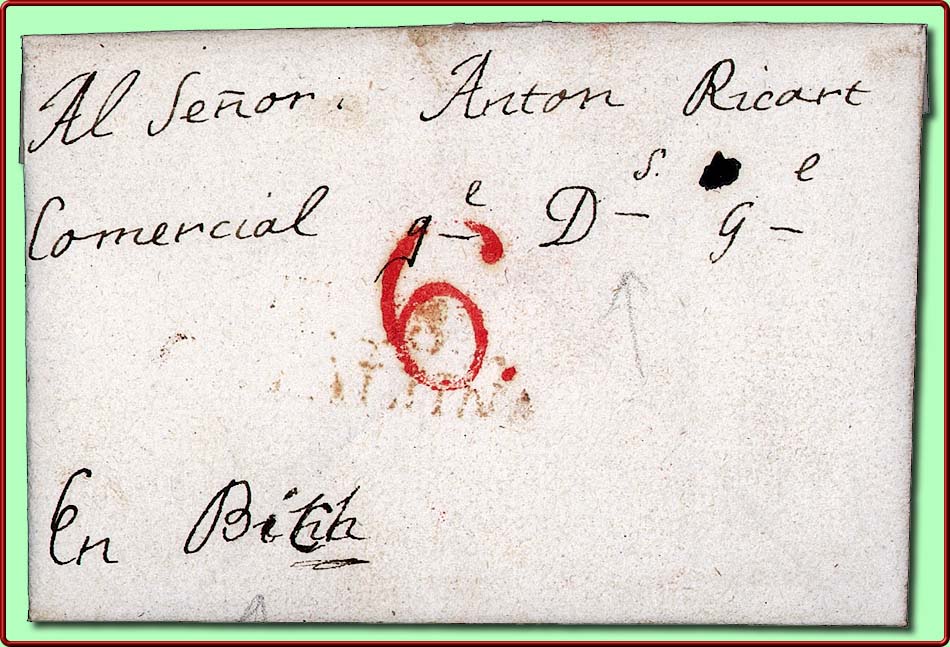 Al Señor. Anton Ricart
Comercial q^e D^s. G^e
6.
En